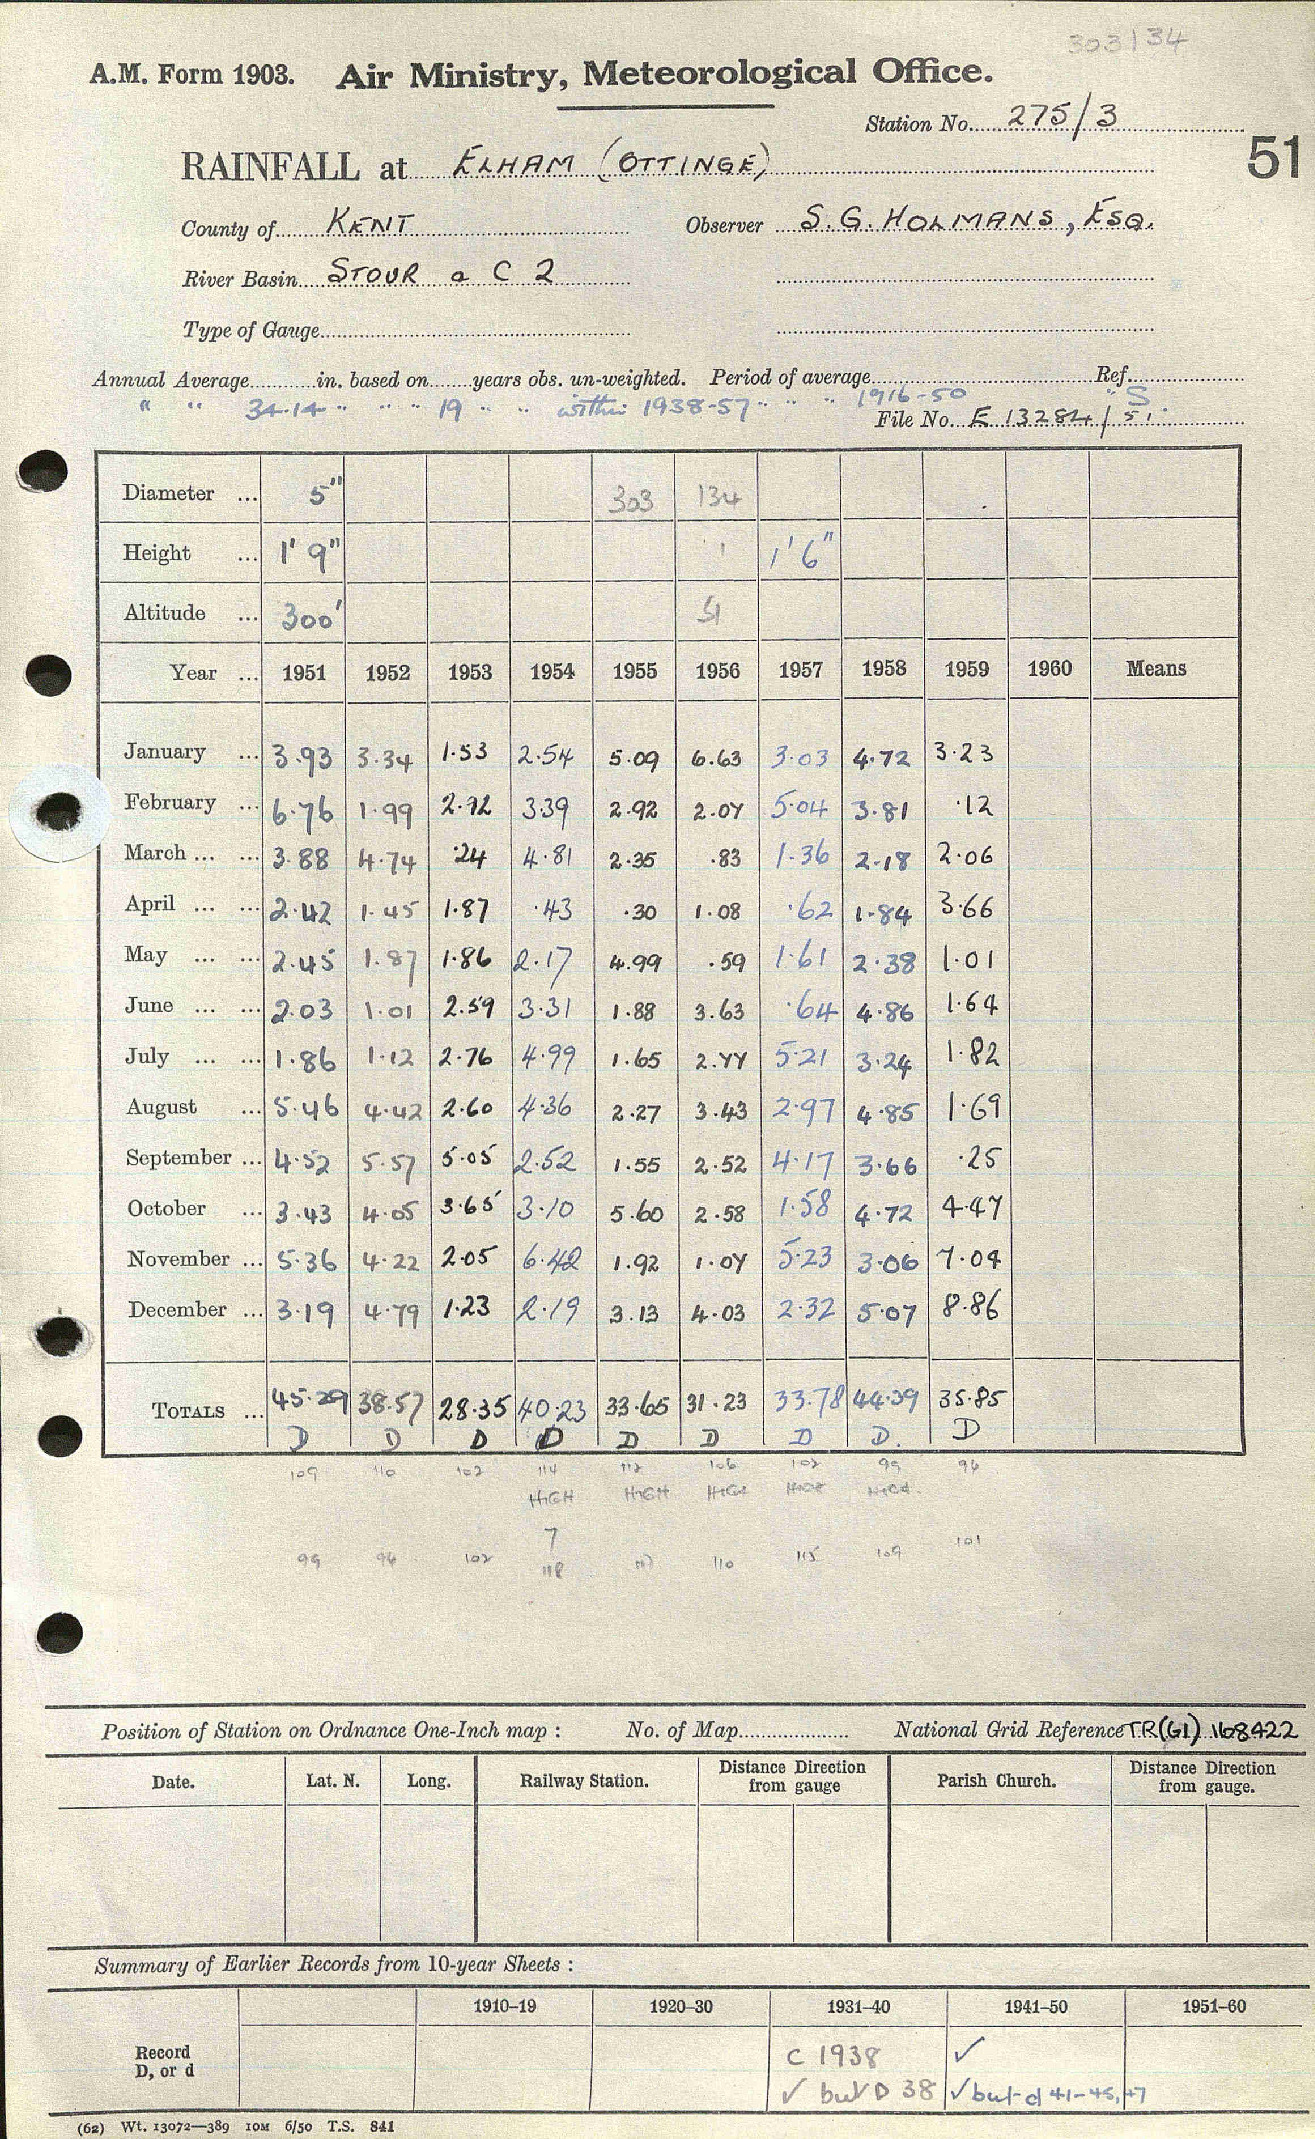 303134
A.M. Form 1903. Air Ministry, Meteorological Office.
Station No. 275/3
51
RAINFALL at ELHAM (OTTINGE)
County of KENT Observer S.G. HOLMANS, ESQ.
River Basin STOUR a C 2
Type of Gauge
Annual Average in. based on years obs. un-weighted. Period of average Ref.
" " 34.14 " " " 19 " " within 1938-57 " " " 1916-50 " S
File No. E 13284/51
Diameter ... 5" 303 134
Height ... 1' 9" 1 1' 6"
Altitude ... 300' 51
Year ... 1951 1952 1953 1954 1955 1956 1957 1958 1959 1960 Means
January ... 3.93 3.34 1.53 2.54 5.09 6.63 3.03 4.72 3.23
February ... 6.76 1.99 2.92 3.39 2.92 2.07 5.04 3.81 .12
March ... ... 3.88 4.74 .24 4.81 2.35 .83 1.36 2.18 2.06
April ... ... 2.42 1.45 1.87 .43 .30 1.08 .62 1.84 3.66
May ... ... 2.45 1.87 1.86 2.17 4.99 .59 1.61 2.38 1.01
June ... ... 2.03 1.01 2.59 3.31 1.88 3.63 .64 4.86 1.64
July ... ... 1.86 1.12 2.76 4.99 1.65 2.77 5.21 3.24 1.82
August ... 5.46 4.42 2.60 4.36 2.27 3.43 2.97 4.85 1.69
September ... 4.52 5.57 5.05 2.52 1.55 2.52 4.17 3.66 .25
October ... 3.43 4.05 3.65 3.10 5.60 2.58 1.58 4.72 4.47
November ... 5.36 4.22 2.05 6.42 1.92 1.07 5.23 3.06 7.04
December ... 3.19 4.79 1.23 2.19 3.13 4.03 2.32 5.07 8.86
TOTALS ... 45.29 38.57 28.35 40.23 33.65 31.23 33.78 44.39 35.85
D D D D D D D D. D
109 110 102 114 112 106 102 99 96
HIGH HIGH HIGH HIGH HIGH
7
99 96 102 118 117 110 115 109 101
Position of Station on Ordnance One-Inch map : No. of Map National Grid Reference TR(61) 168422
Date. Lat. N. Long. Railway Station. Distance Direction from gauge Parish Church. Distance Direction from gauge.
Summary of Earlier Records from 10-year Sheets :
1910–19 1920–30 1931–40 1941–50 1951–60
Record D, or d
C 1938 ✓
✓ but D 38 ✓ but d 41-45, 47
(62) Wt. 13072—389 10M 6/50 T.S. 841